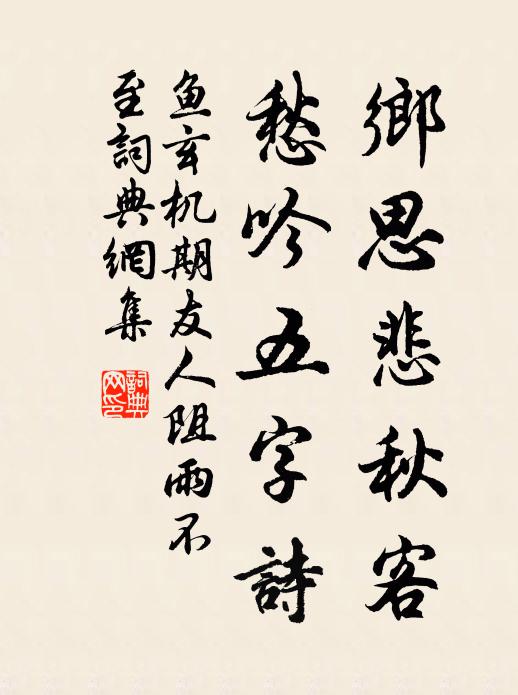 鄉思悲秋客
愁吟五字詩
鱼玄机期友人阻雨不
至詞典網集
詞典
网印